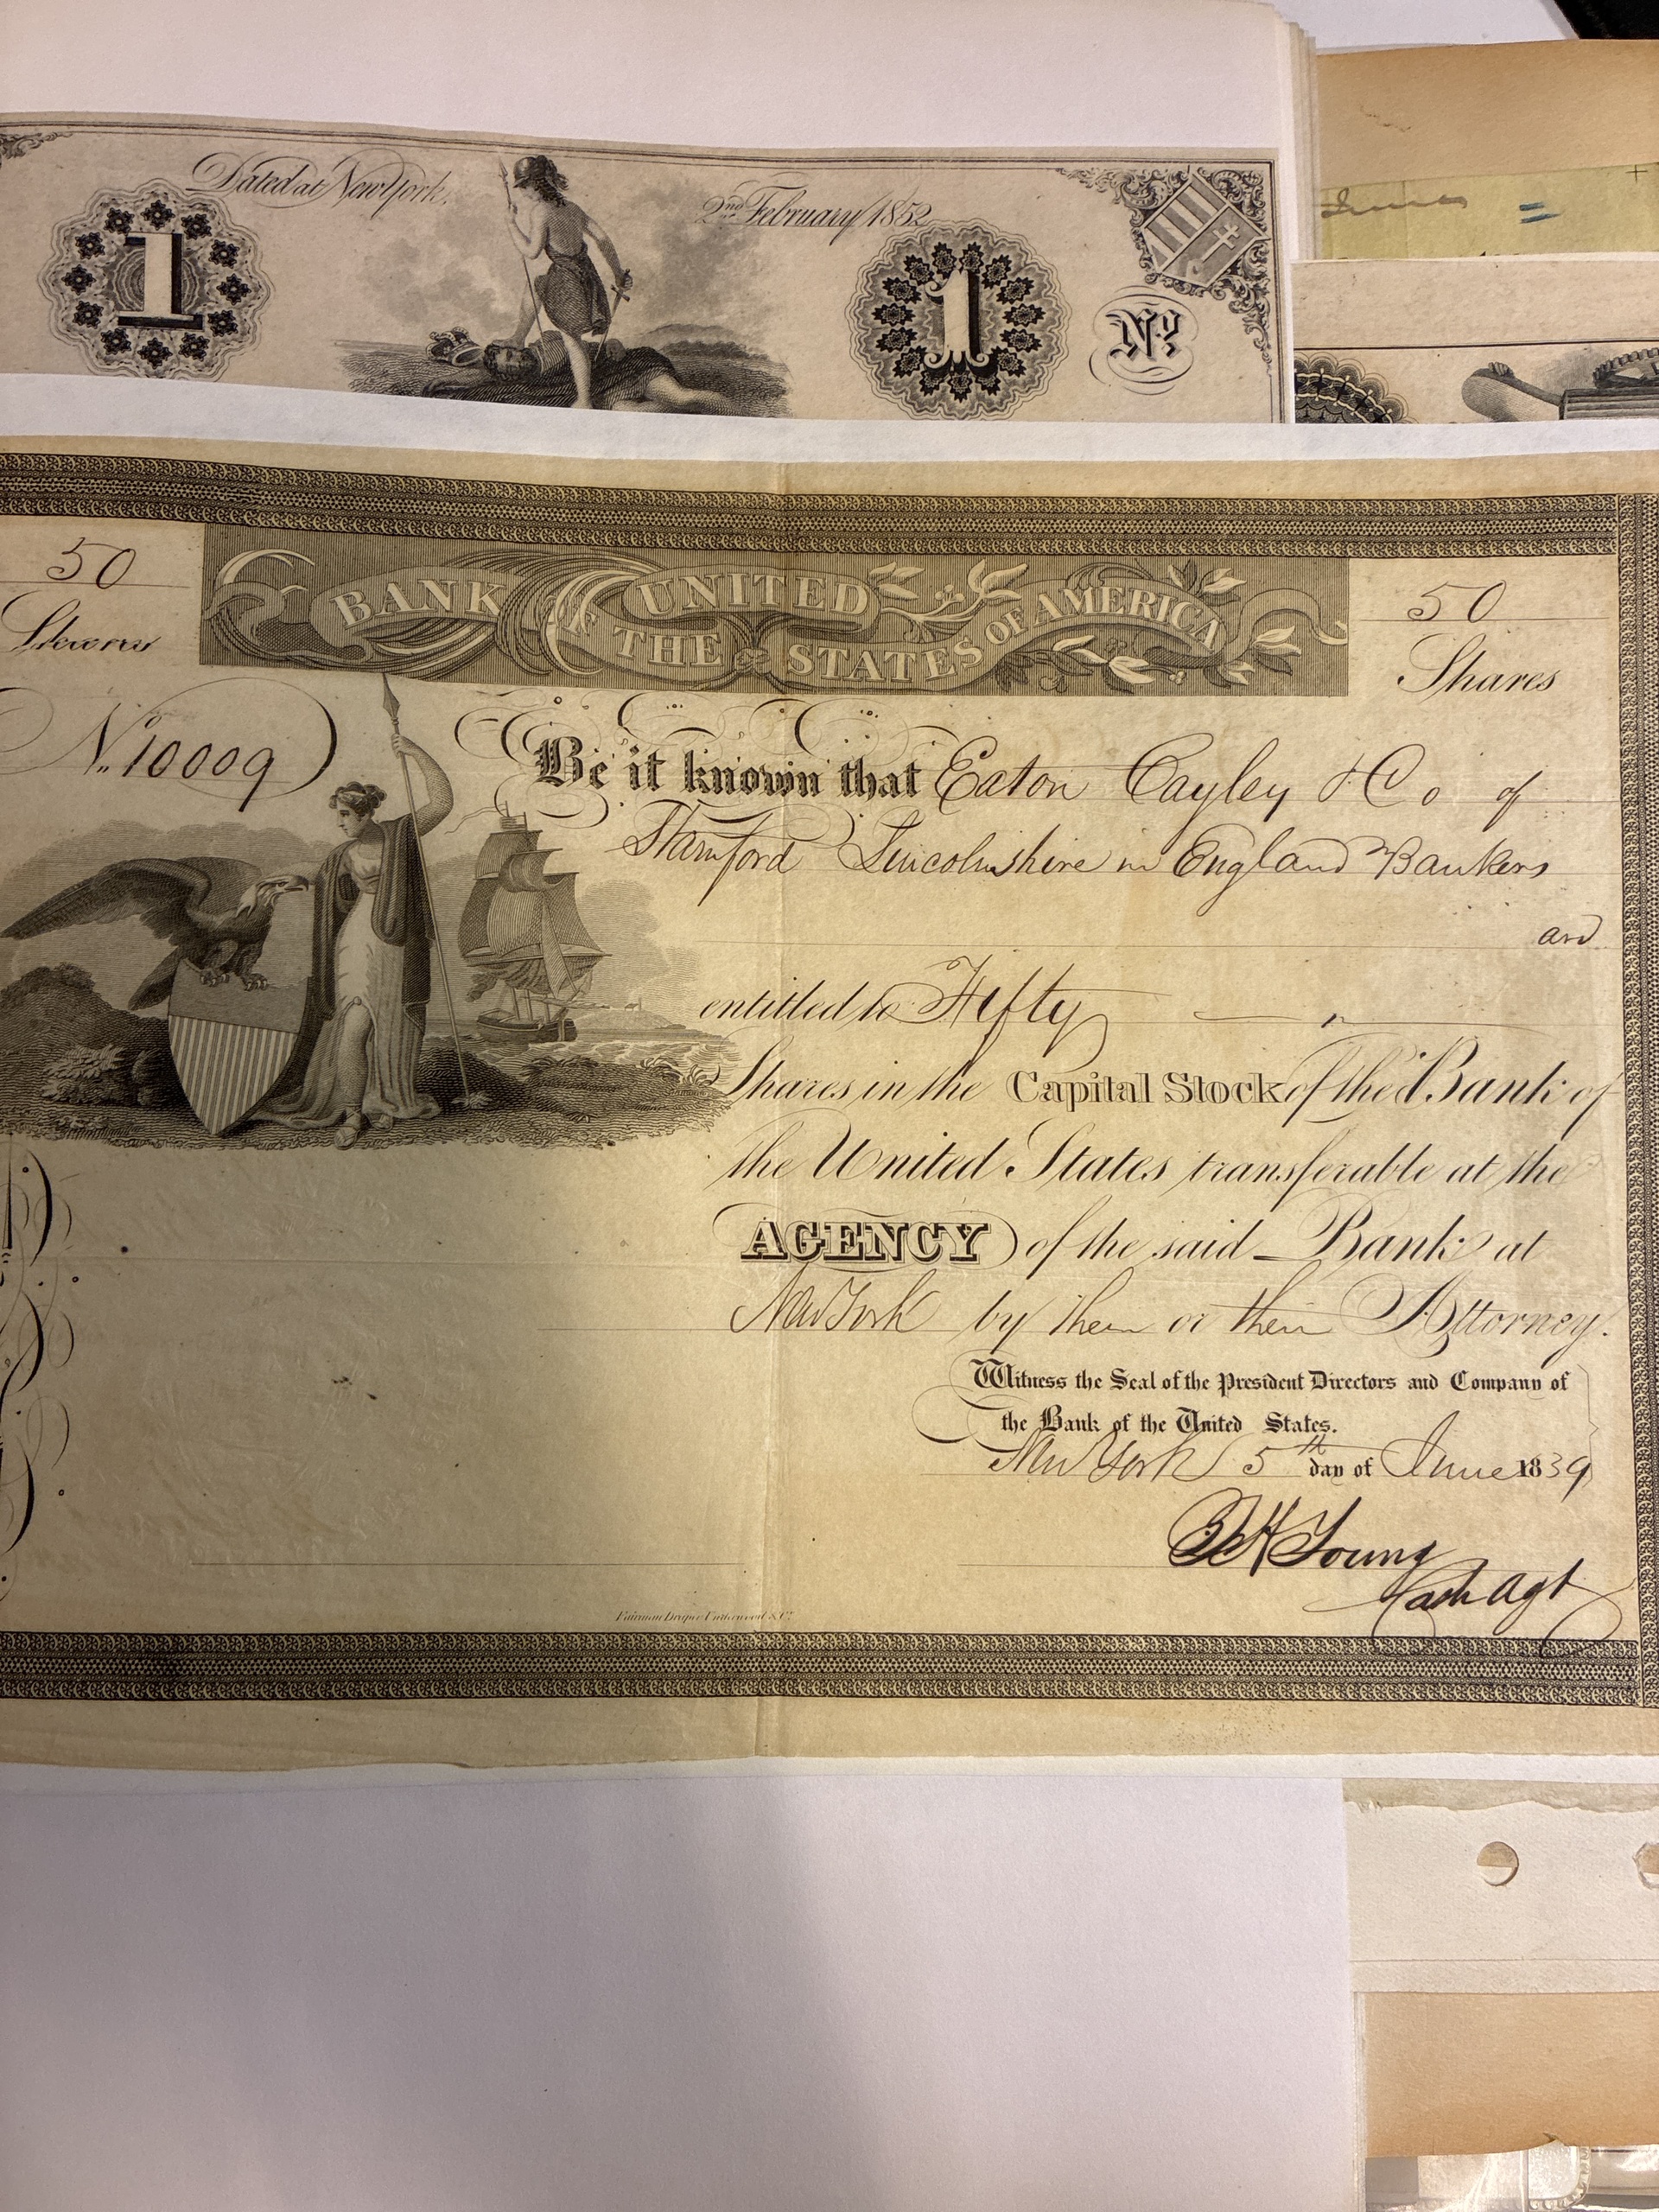 Dated at New York,
2nd February 1852
1
1
No.
50
BANK OF THE UNITED STATES OF AMERICA
50
Shares
No. 10009
Be it known that Eaton Cayley & Co of
Stamford Lincolnshire in England Bankers
are
entitled to Fifty
Shares in the Capital Stock of the Bank of
the United States transferable at the
AGENCY of the said Bank at
New York by them or their Attorney.
Witness the Seal of the President Directors and Company of
the Bank of the United States.
New York 5th day of June 1839
Young
Cash Agt
Fairman Draper Underwood & Co.